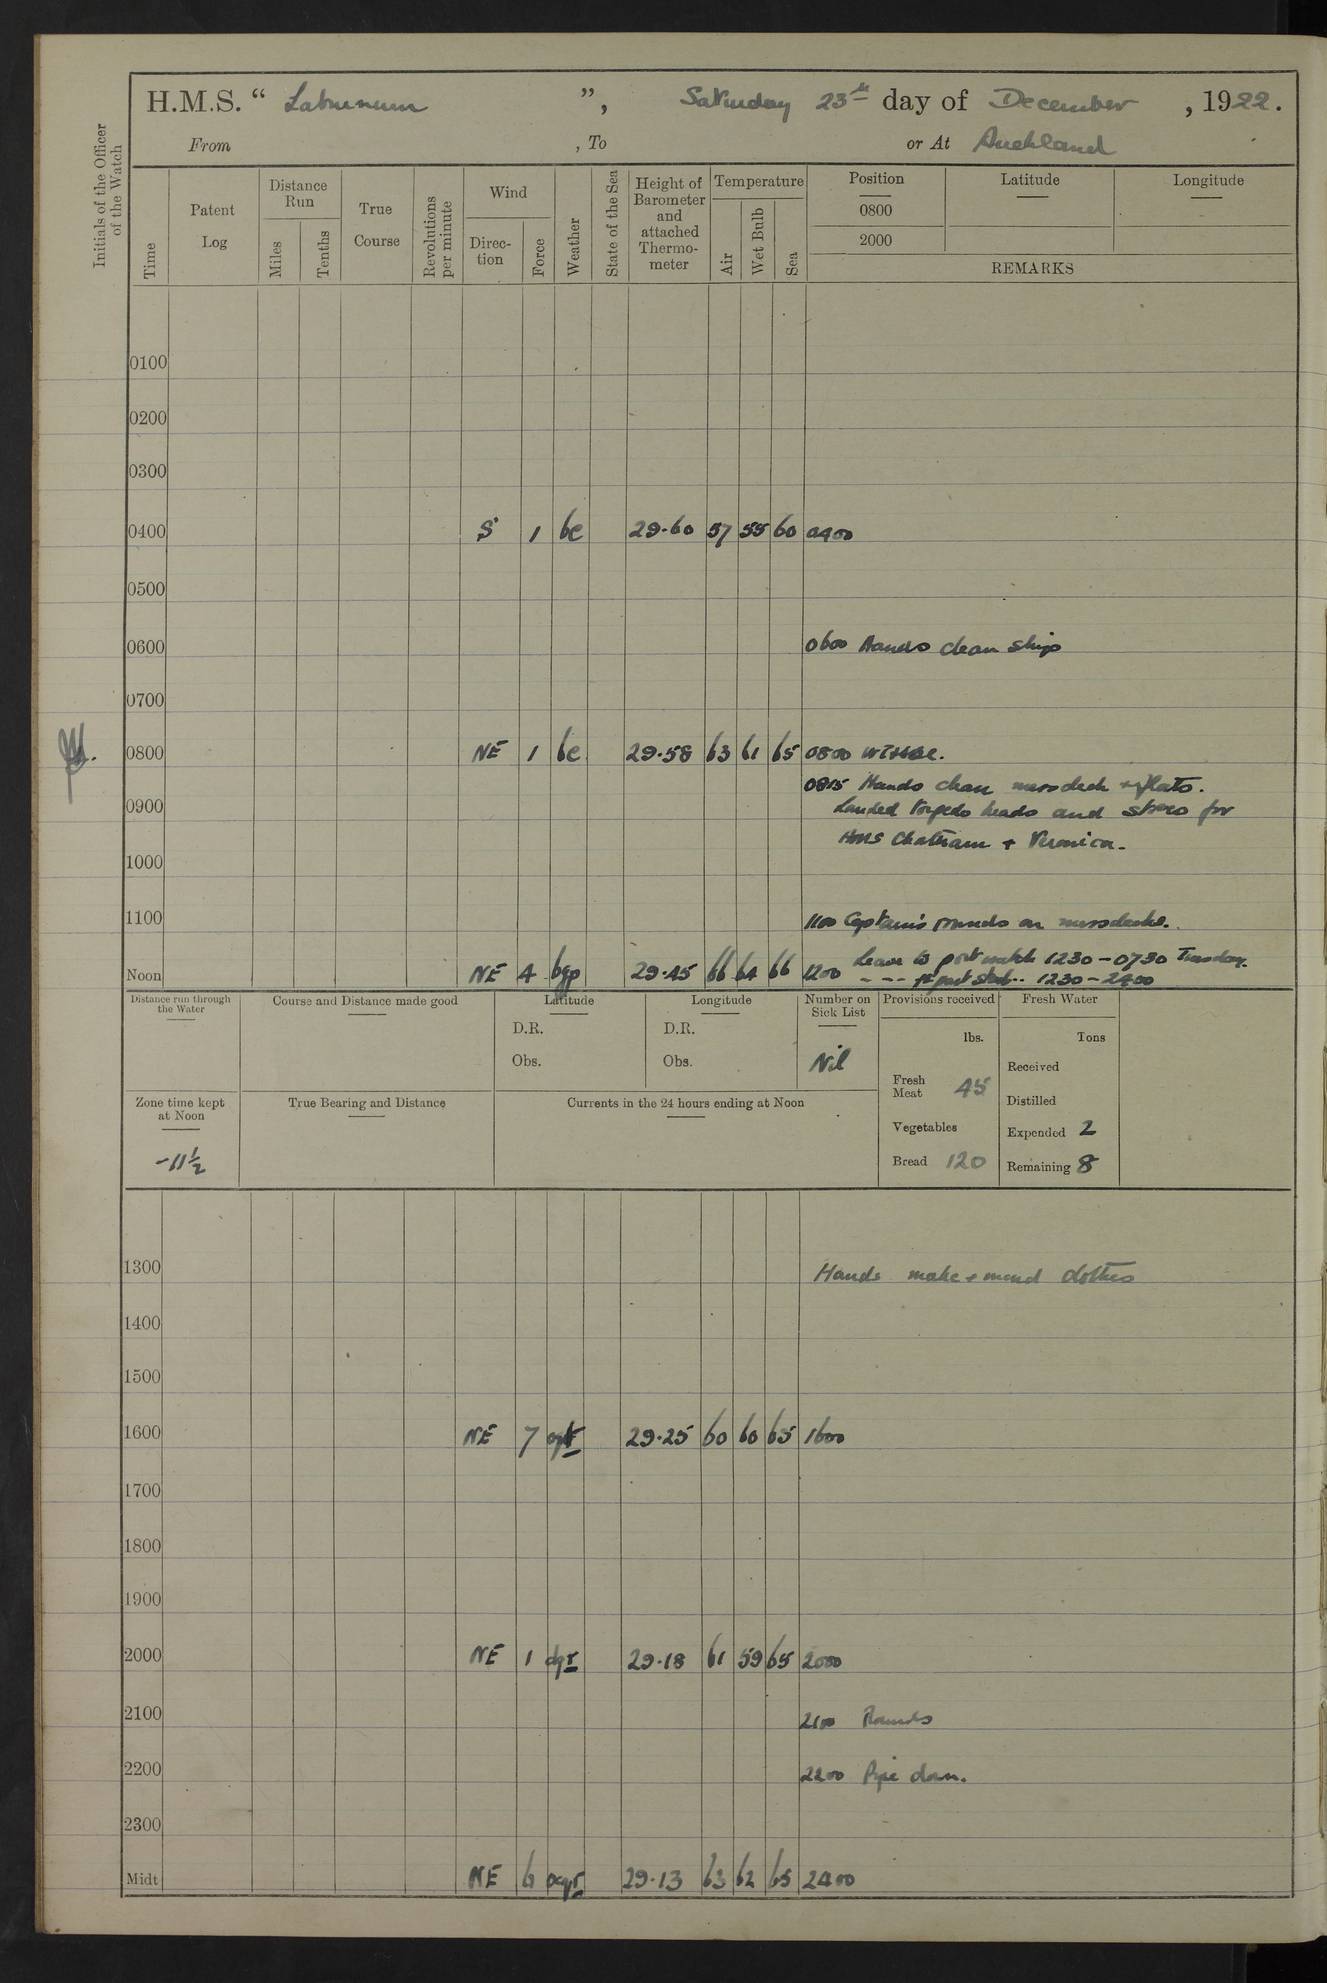 H.M.S. “ Laburnum ”, Saturday 23rd day of December , 1922.
From , To or At Auckland
Initials of the Officer of the Watch
Time
Patent Log
Distance Run
Miles
Tenths
True Course
Revolutions per minute
Wind
Direction
Force
Weather
State of the Sea
Height of Barometer and attached Thermometer
Temperature
Air
Wet Bulb
Sea
Position
0800
2000
Latitude
Longitude
REMARKS
0100
0200
0300
0400 S 1 bc 29.60 57 55 60 0400
0500
0600 0600 Hands clean ship
0700
0800 NE 1 bc 29.58 63 61 65 0800
0815 Hands clean messdeck + flats.
0900 Landed torpedo heads and stores for
HMS Chatham + Veronica.
1000
1100 1100 Captain's rounds on messdecks.
Leave to port watch 1230 – 0730 Tuesday.
Noon NE 4 29.45 66 64 66 1200 1230 – 2400
Distance run through the Water
Course and Distance made good
Latitude
D.R.
Obs.
Longitude
D.R.
Obs.
Number on Sick List
Nil
Provisions received
lbs.
Fresh Meat 45
Vegetables
Bread 120
Fresh Water
Tons
Received
Distilled
Expended 2
Remaining 8
Zone time kept at Noon
-11½
True Bearing and Distance
Currents in the 24 hours ending at Noon
1300 Hands make + mend clothes
1400
1500
1600 NE 7 29.25 60 60 65 1600
1700
1800
1900
2000 NE 1 29.18 61 59 65 2000
2100 2100 Rounds
2200 2200 Pipe down.
2300
Midt NE 6 29.13 63 62 65 2400